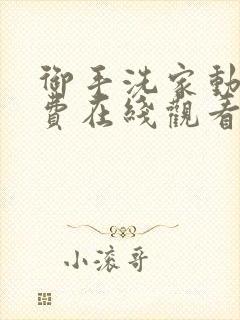 御手洗家動
費在綫觀看
小滚哥